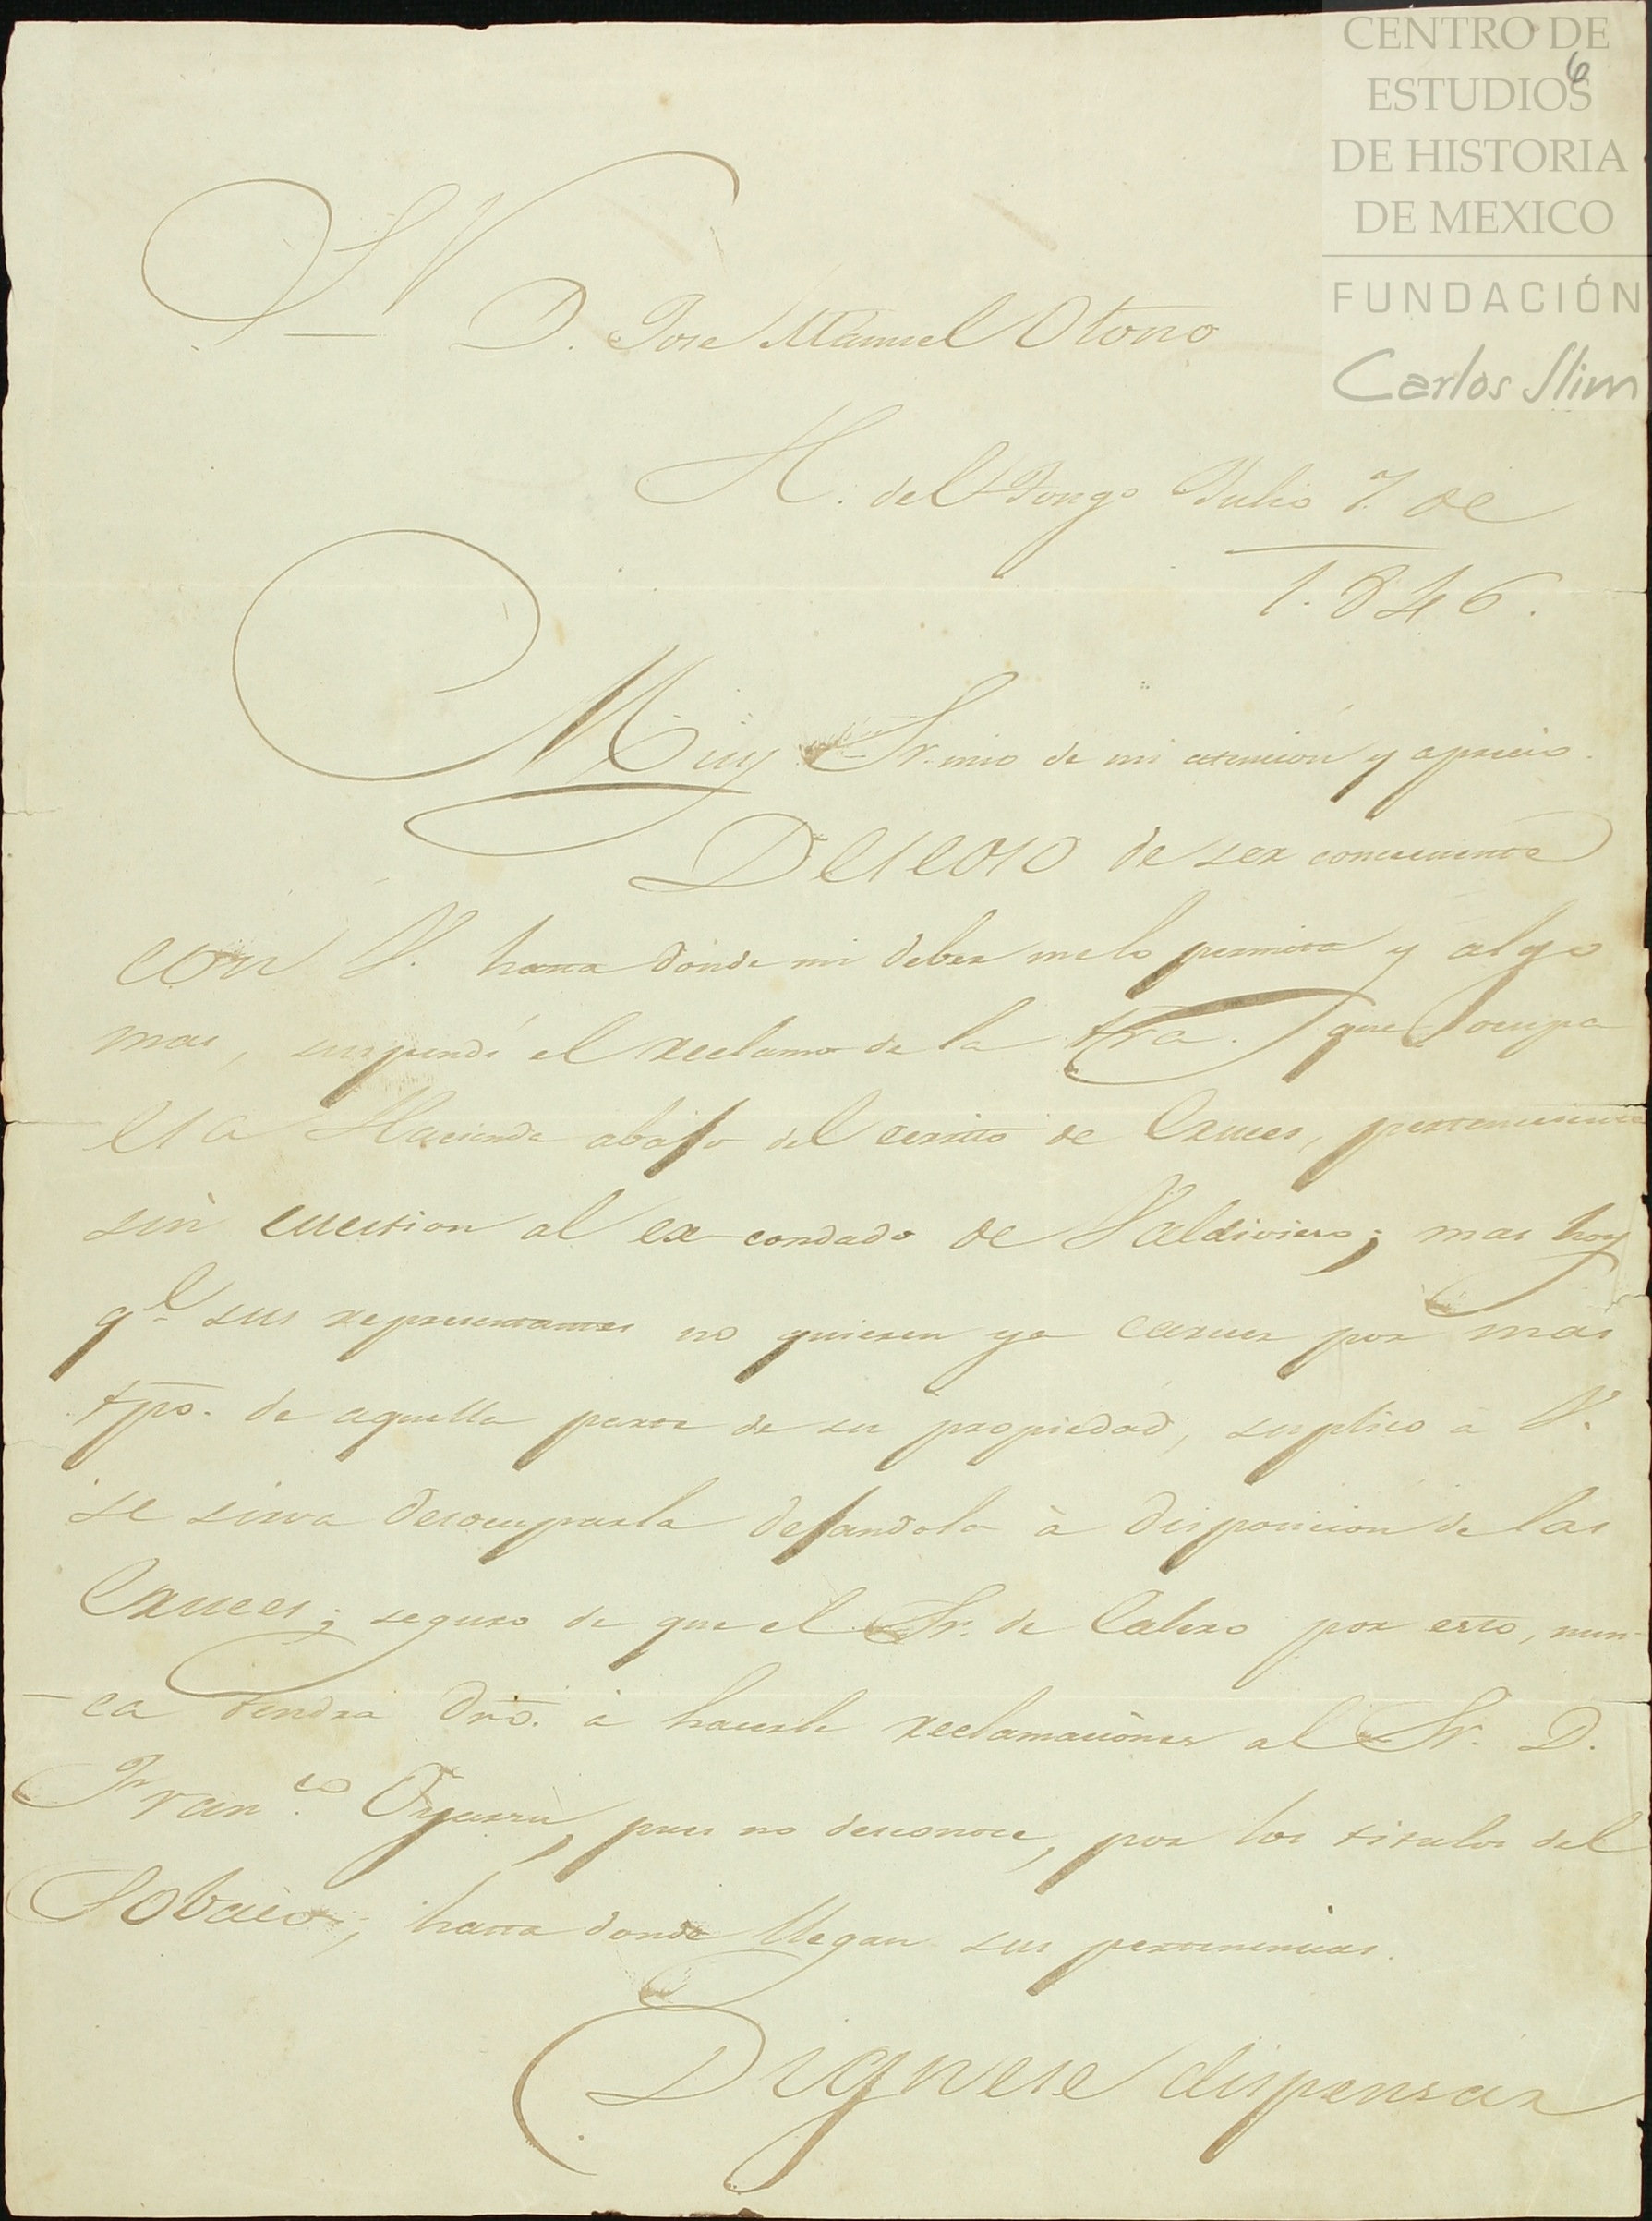 CENTRO DE
ESTUDIOS
DE HISTORIA
DE MEXICO
FUNDACIÓN
Carlos Slim
6
Sr
D. Jose Manuel Otoño
H. del Jongo Julio 7. de
1.846.
Muy Sr. mio de mi atencion y aprecio.
Deseoso de ser consecuente
con V. hasta donde mi deber me lo permita y algo
mas, suspendí el reclamo de la tra. que ocupa
esa Hacienda abajo del cerrito de Cruces, perteneciente
sin cuestion al ex-condado de Valdivieso; mas hoy
qe. sus representantes no quieren ya carecer por mas
tpo. de aquella parte de su propiedad, suplico à V.
se sirva desocuparla dejandola à disposicion de las
Cruces; seguro de que el Sr. de Calero por esto, nun-
-ca tendra dro. à hacerle reclamaciones al Sr. D.
Fran.co Oyarzu, pues no desconoce, por los titulos del
Sobaco, hasta donde llegan sus pertenencias.
Dignese dispensar